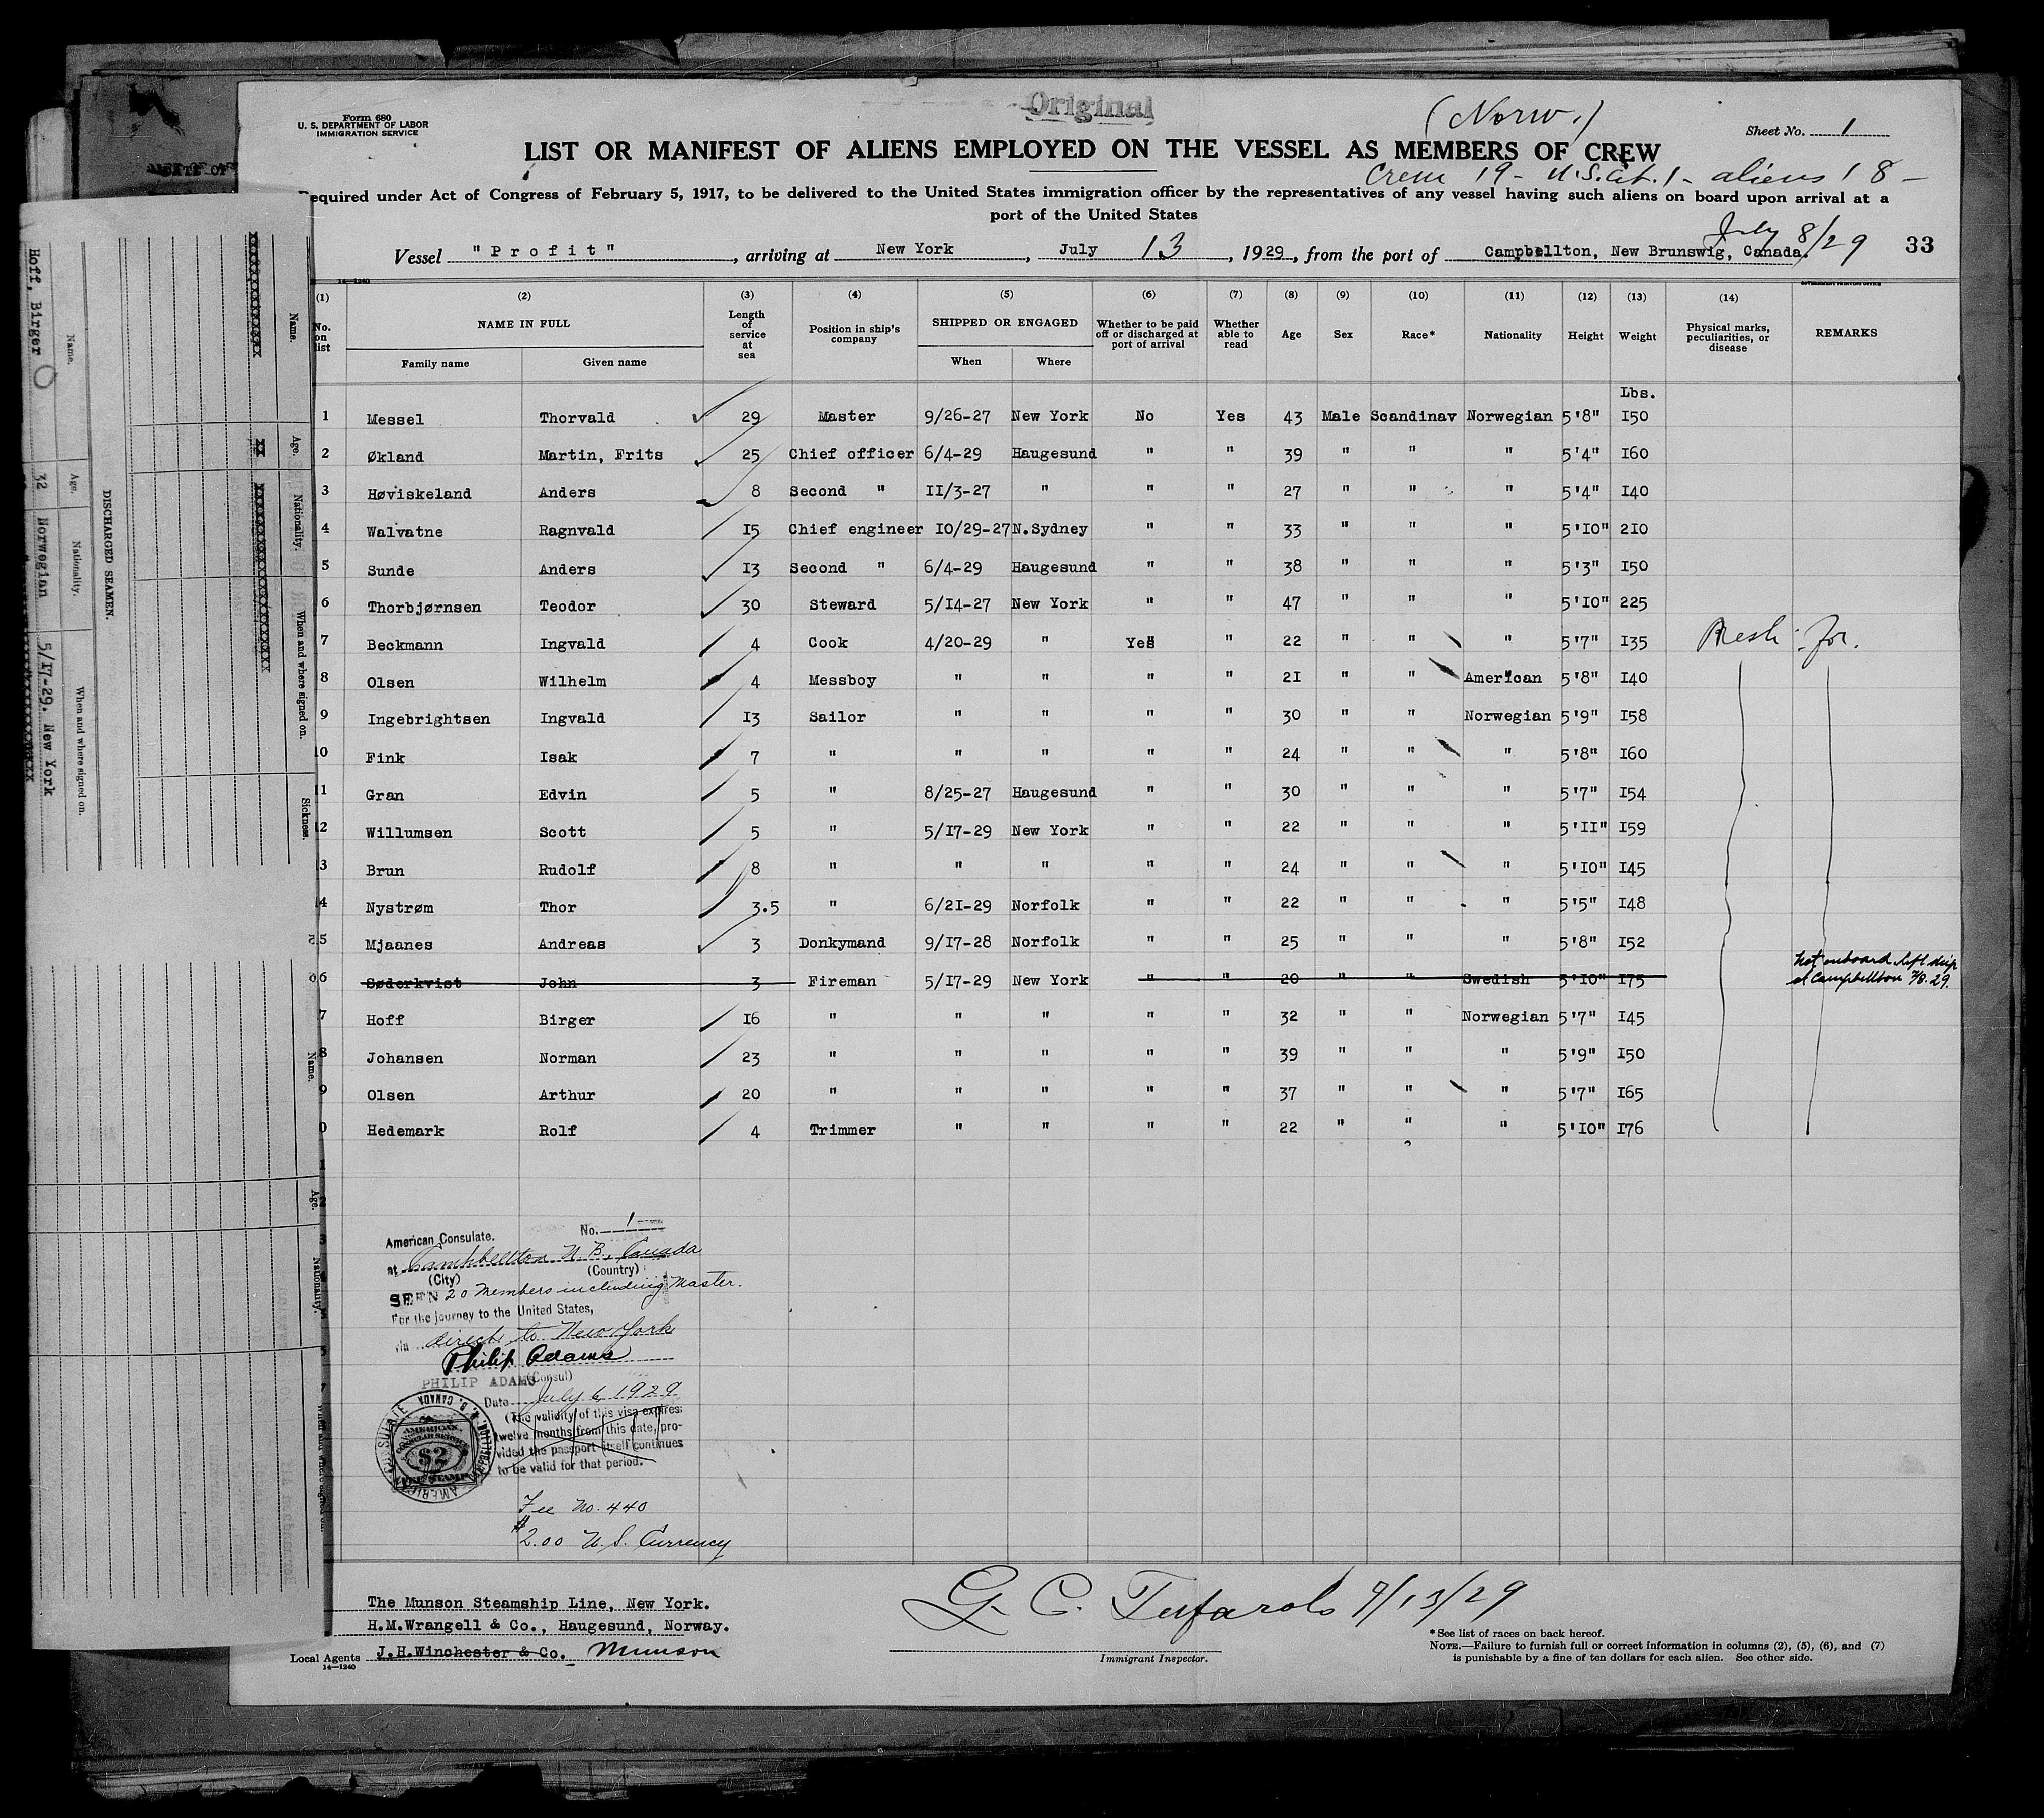 Original
(Norw.)
Form 680
U. S. DEPARTMENT OF LABOR
IMMIGRATION SERVICE
Sheet No. 1
LIST OR MANIFEST OF ALIENS EMPLOYED ON THE VESSEL AS MEMBERS OF CREW
Crew 19 - U.S. Cit. 1 - aliens 18 -
Required under Act of Congress of February 5, 1917, to be delivered to the United States immigration officer by the representatives of any vessel having such aliens on board upon arrival at a
port of the United States
July 8/29
Vessel "Profit", arriving at New York, July 13, 1929, from the port of Campbellton, New Brunswig, Canada. 33
14—1240
GOVERNMENT PRINTING OFFICE
(1) (2) (3) (4) (5) (6) (7) (8) (9) (10) (11) (12) (13) (14)
No. on list NAME IN FULL Family name Given name Length of service at sea Position in ship's company SHIPPED OR ENGAGED When Where Whether to be paid off or discharged at port of arrival Whether able to read Age Sex Race* Nationality Height Weight Physical marks, peculiarities, or disease REMARKS
Lbs.
1 Messel Thorvald 29 Master 9/26-27 New York No Yes 43 Male Scandinav Norwegian 5'8" 150
2 Økland Martin, Frits 25 Chief officer 6/4-29 Haugesund " " 39 " " " 5'4" 160
3 Høviskeland Anders 8 Second " 11/3-27 " " " 27 " " " 5'4" 140
4 Walvatne Ragnvald 15 Chief engineer 10/29-27 N.Sydney " " 33 " " " 5'10" 210
5 Sunde Anders 13 Second " 6/4-29 Haugesund " " 38 " " " 5'3" 150
6 Thorbjørnsen Teodor 30 Steward 5/14-27 New York " " 47 " " " 5'10" 225
7 Beckmann Ingvald 4 Cook 4/20-29 " Yes " 22 " " " 5'7" 135
8 Olsen Wilhelm 4 Messboy " " " " 21 " " American 5'8" 140
9 Ingebrightsen Ingvald 13 Sailor " " " " 30 " " Norwegian 5'9" 158
10 Fink Isak 7 " " " " " 24 " " " 5'8" 160
11 Gran Edvin 5 " 8/25-27 Haugesund " " 30 " " " 5'7" 154
12 Willumsen Scott 5 " 5/17-29 New York " " 22 " " " 5'11" 159
3 Brun Rudolf 8 " " " " " 24 " " " 5'10" 145
4 Nystrøm Thor 3.5 " 6/21-29 Norfolk " " 22 " " " 5'5" 148
5 Mjaanes Andreas 3 Donkymand 9/17-28 Norfolk " " 25 " " " 5'8" 152
6 Søderkvist John 3 Fireman 5/17-29 New York " " 20 " " Swedish 5'10" 175 Not onboard left ship at Campbellton 7/8.29.
7 Hoff Birger 16 " " " " " 32 " " Norwegian 5'7" 145
8 Johansen Norman 23 " " " " " 39 " " " 5'9" 150
9 Olsen Arthur 20 " " " " " 37 " " " 5'7" 165
0 Hedemark Rolf 4 Trimmer " " " " 22 " " " 5'10" 176
American Consulate. No. 1
at Campbellton N. B., Canada
(City) (Country)
SEEN 20 members including Master.
For the journey to the United States,
via direct to New York
Philip Adams
PHILIP ADAMS (Consul)
Date July 6, 1929
(The validity of this visa expires
twelve months from this date, pro-
vided the passport itself continues
to be valid for that period.
AMERICAN
CONSULAR SERVICE
$2
FEE STAMP
Fee No. 440
$2.00 U. S. Currency
The Munson Steamship Line, New York.
H.M.Wrangell & Co., Haugesund, Norway.
Local Agents J.H.Winchester & Co. Munson
14—1240
Immigrant Inspector.
*See list of races on back hereof.
NOTE.—Failure to furnish full or correct information in columns (2), (5), (6), and (7)
is punishable by a fine of ten dollars for each alien. See other side.
DISCHARGED SEAMEN.
Name. Age. Nationality. When and where signed on.
Hoff, Birger 32 Norwegian 5/17-29. New York
Name. Age. Nationality. When and where signed on. Sickness.
Name. Age. Nationality.